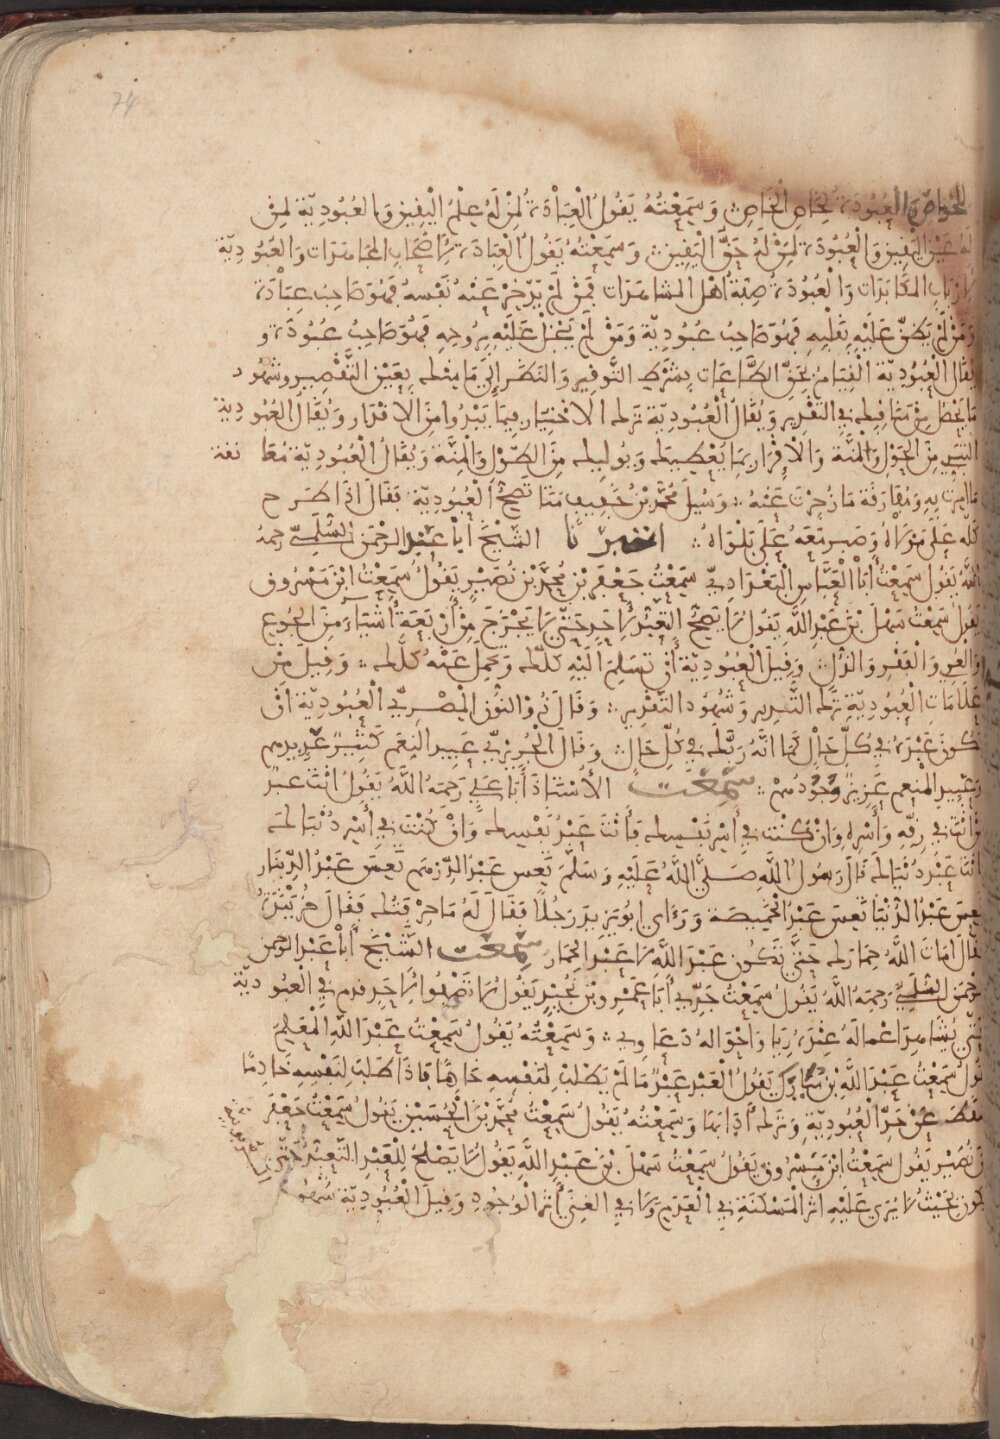 74
للخواص والعبودة لخاص الخاص وسمعته يقول العبادة لمن له علم اليفين والعبودية لمن
له عين اليفين والعبودة لمن له حق اليفين وسمعته يقول العبادة لاصحاب المجاهدات والعبودية
لارباب المكابدات والعبودة صبة اهل المشاهدات فمن لم يدخر عنه نفسه فهو صاحب عبادة
ومن لم يضن عليه بقلبه فهو صاحب عبودية ومن لم يبخل عليه بروحه فهو صاحب عبودة و
يقال العبودية القيام بحق الطاعات بشرط التوفير والنظر الى ما منك بعين التقصير وشهود
ما يحصل من منافبك من التقدير ويقال العبودية ترك الاختيار فيما يبدوا من الاقدار ويقال العبودية
التبري من الحول والمنة والاقرار بما يعطيك ويوليك من الطول والمنة ويقال العبودية معا نقة
ما امرت به ومفارقة ما زجرت عنه وسيل محمد بن خفيف متا تصح العبودية فقال اذا طرح
كله على مولاه وصبر معه على بلواه اخبرنا الشيخ ابا عبد الرحمن السلمي رحمه
الله يقول سمعت ابا العباس البغدادي سمعت جعفر بن محمد بن نصير يقول سمعت ابن مسروق
يقول سمعت سهل بن عبد الله يقول لا يصح التعبد لاحد حتى لا يجزع من اربعة اشياء من الجوع
والعري والفقر والذل وقيل العبودية ان تسلم اليه كلك وتحمل عنه كلك وقيل من
علامات العبودية ترك التدبير وشهود التقدير وقال ذو النون المصري العبودية ان
تكون عبده في كل حال كما انه ربك في كل حال وقال الجريري عبيد النعم كثير عديدهم
وعبيد المنعم عزيز وجودهم سمعت الاستاذ ابا علي رحمه الله يقول انت عبد
من انت في رقه واسره وان كنت في اسر نفسك فانت عبد نفسك وان كنت في اسر دنياك
انت عبد دنياك قال رسول الله صلى الله عليه وسلم تعس عبد الدرهم تعس عبد الدينار
تعس عبد الدنيا تعس عبد الخميصة وراى ابو يزيد رجلا فقال له ما حرفتك فقال خربنده
فقال امات الله حمارك حتى تكون عبد الله لا عبد الحمار سمعت الشيخ ابا عبد الرحمن
السلمي رحمه الله يقول سمعت جدي ابا عمرو بن نجيد يقول لا تصفوا لاحد قدم في العبودية
حتى يشاهد اعماله عنده ريا واحواله دعاوي وسمعته يقول سمعت عبد الله المعلم
يقول سمعت عبد الله بن منازل يقول العبد عبد ما لم يطلب لنفسه خادما فاذا طلب لنفسه خادما
سقط عن حد العبودية وترك ادابها وسمعته يقول سمعت محمد بن الحسين يقول سمعت جعفر
بن نصير يقول سمعت ابن مسروق يقول سمعت سهل بن عبد الله يقول لا يصلح للعبد التعبد حتى
يكون بحيث لا يرى عليه اثر المسكنة في العدم ولا في الغنى اثر الوجود وقيل العبودية شهود